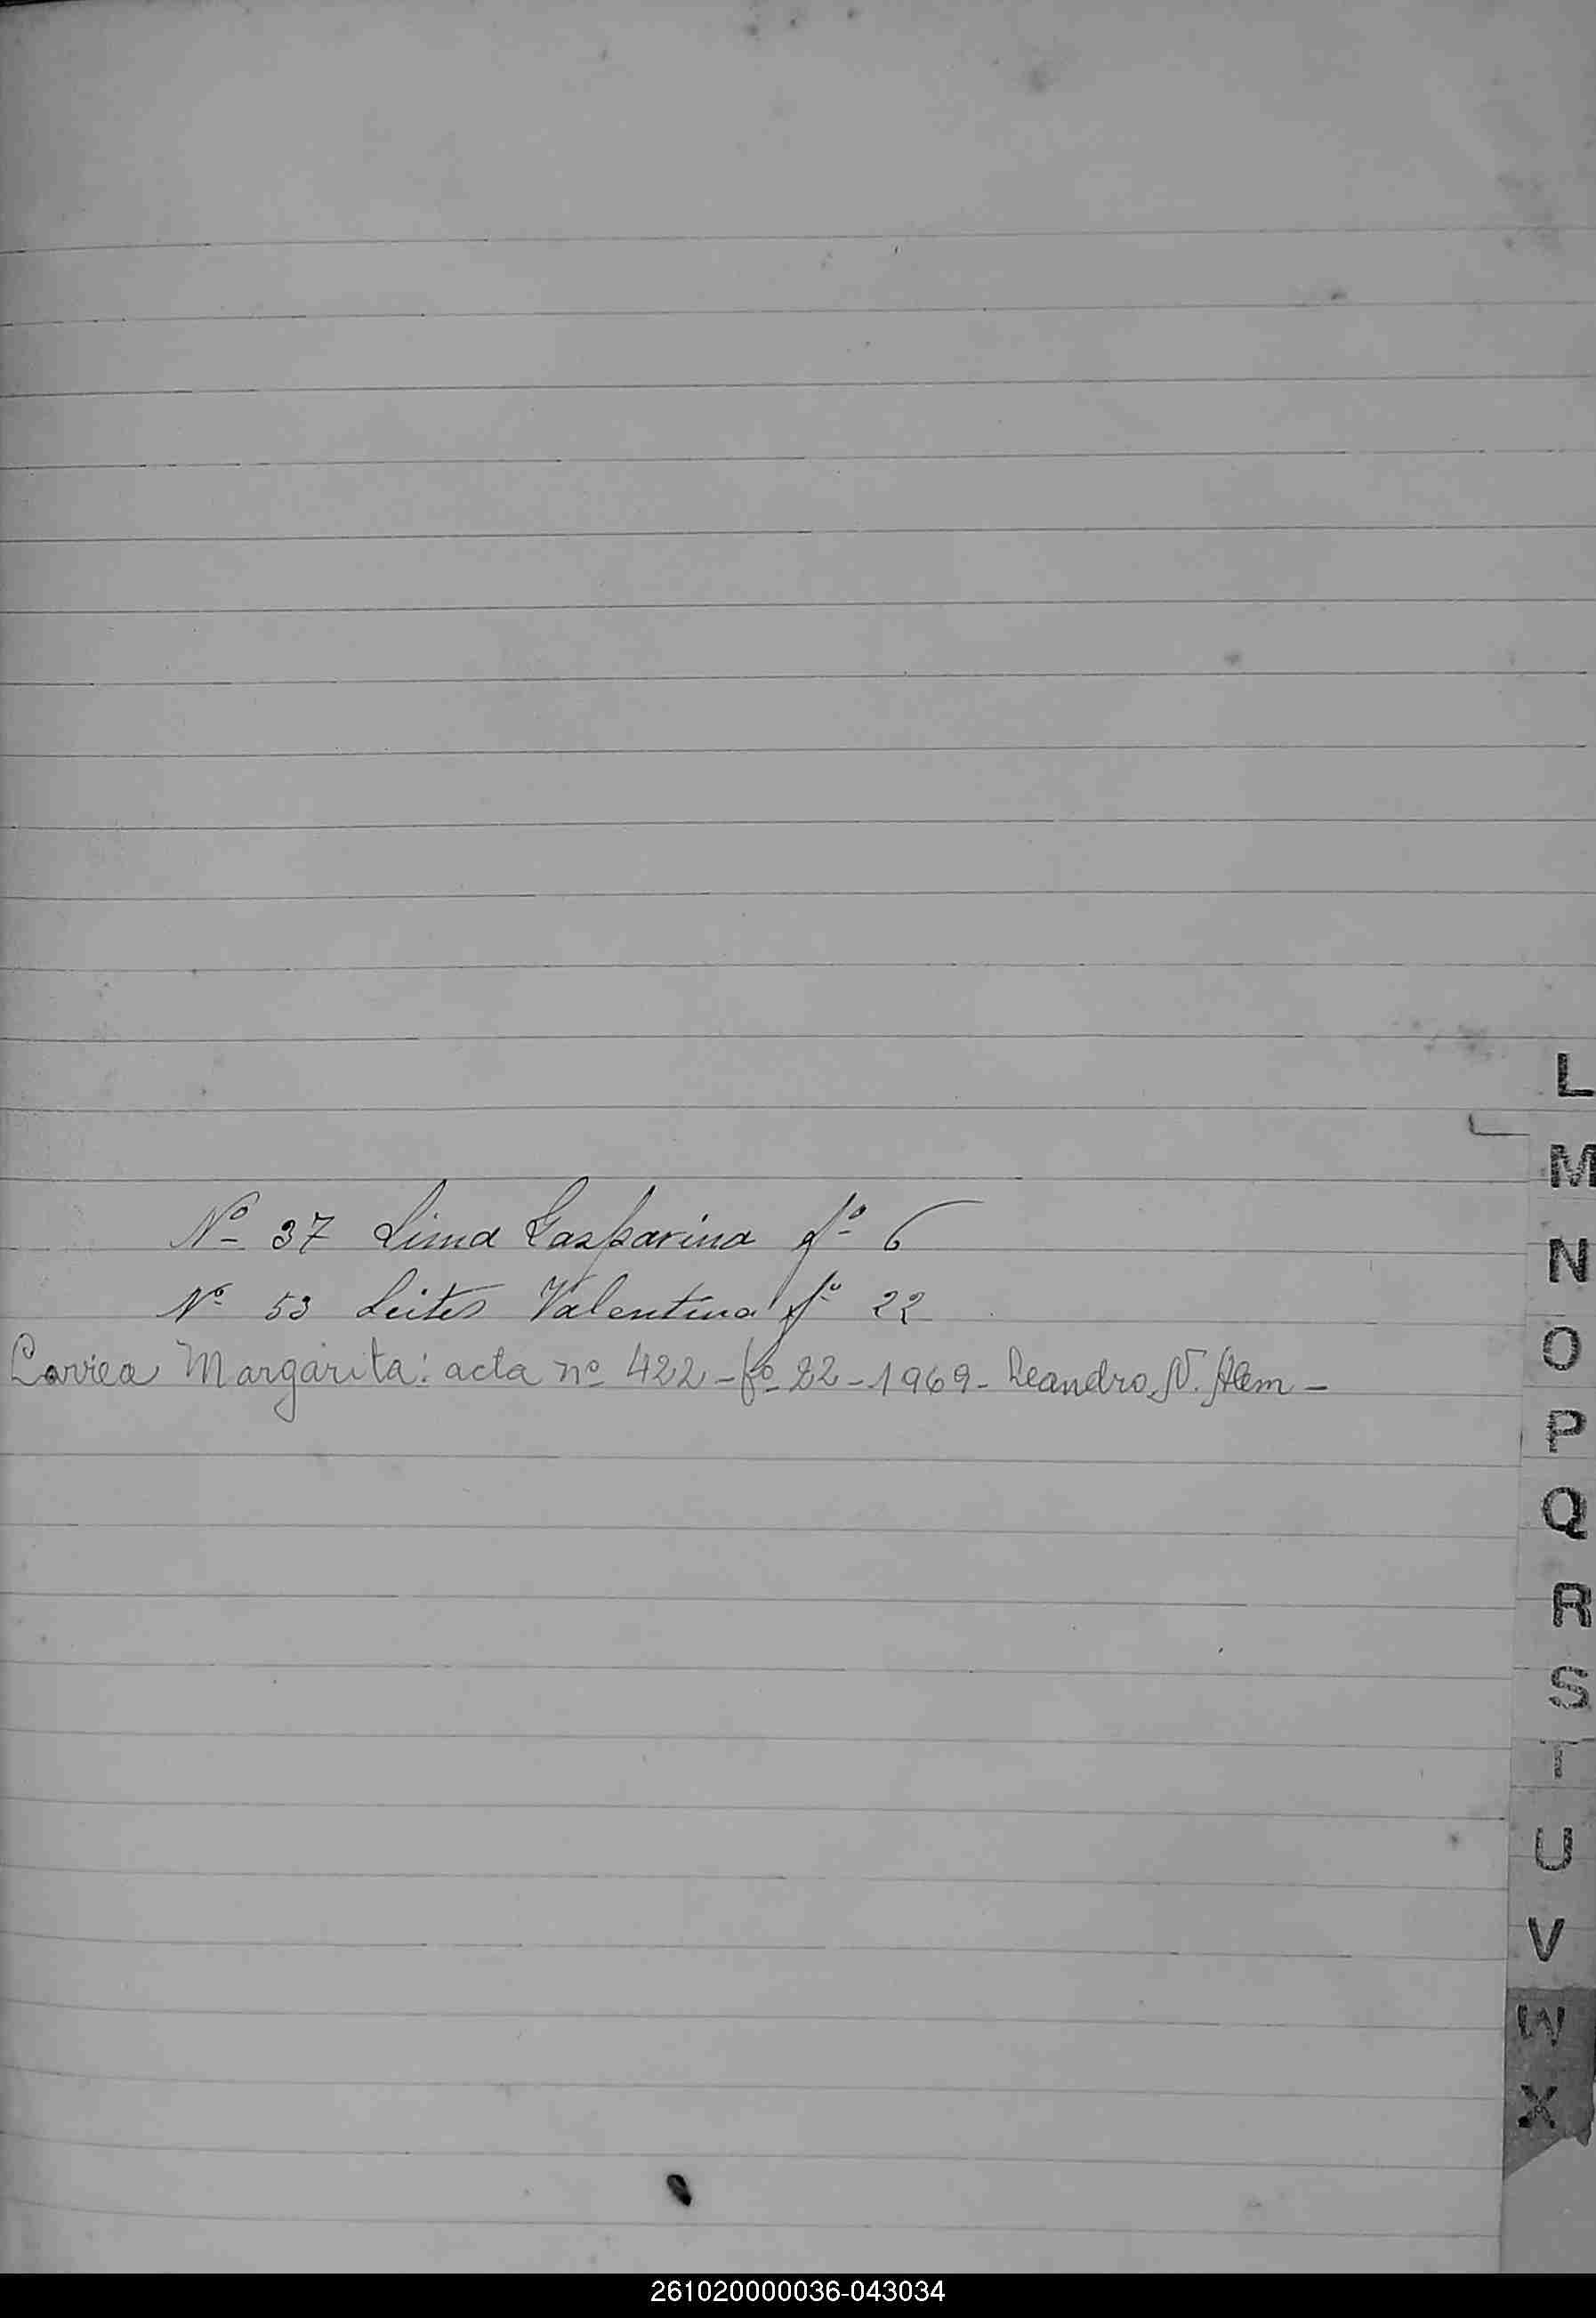 L
M
Nº 37 Lima Gasparina fº 6
N
Nº 53 Leites Valentina fº 22
O
Larrea Margarita: acta nº 422 - fº 22 - 1969 - Leandro N. Alem -
P
Q
R
S
T
U
V
W
X
261020000036-043034